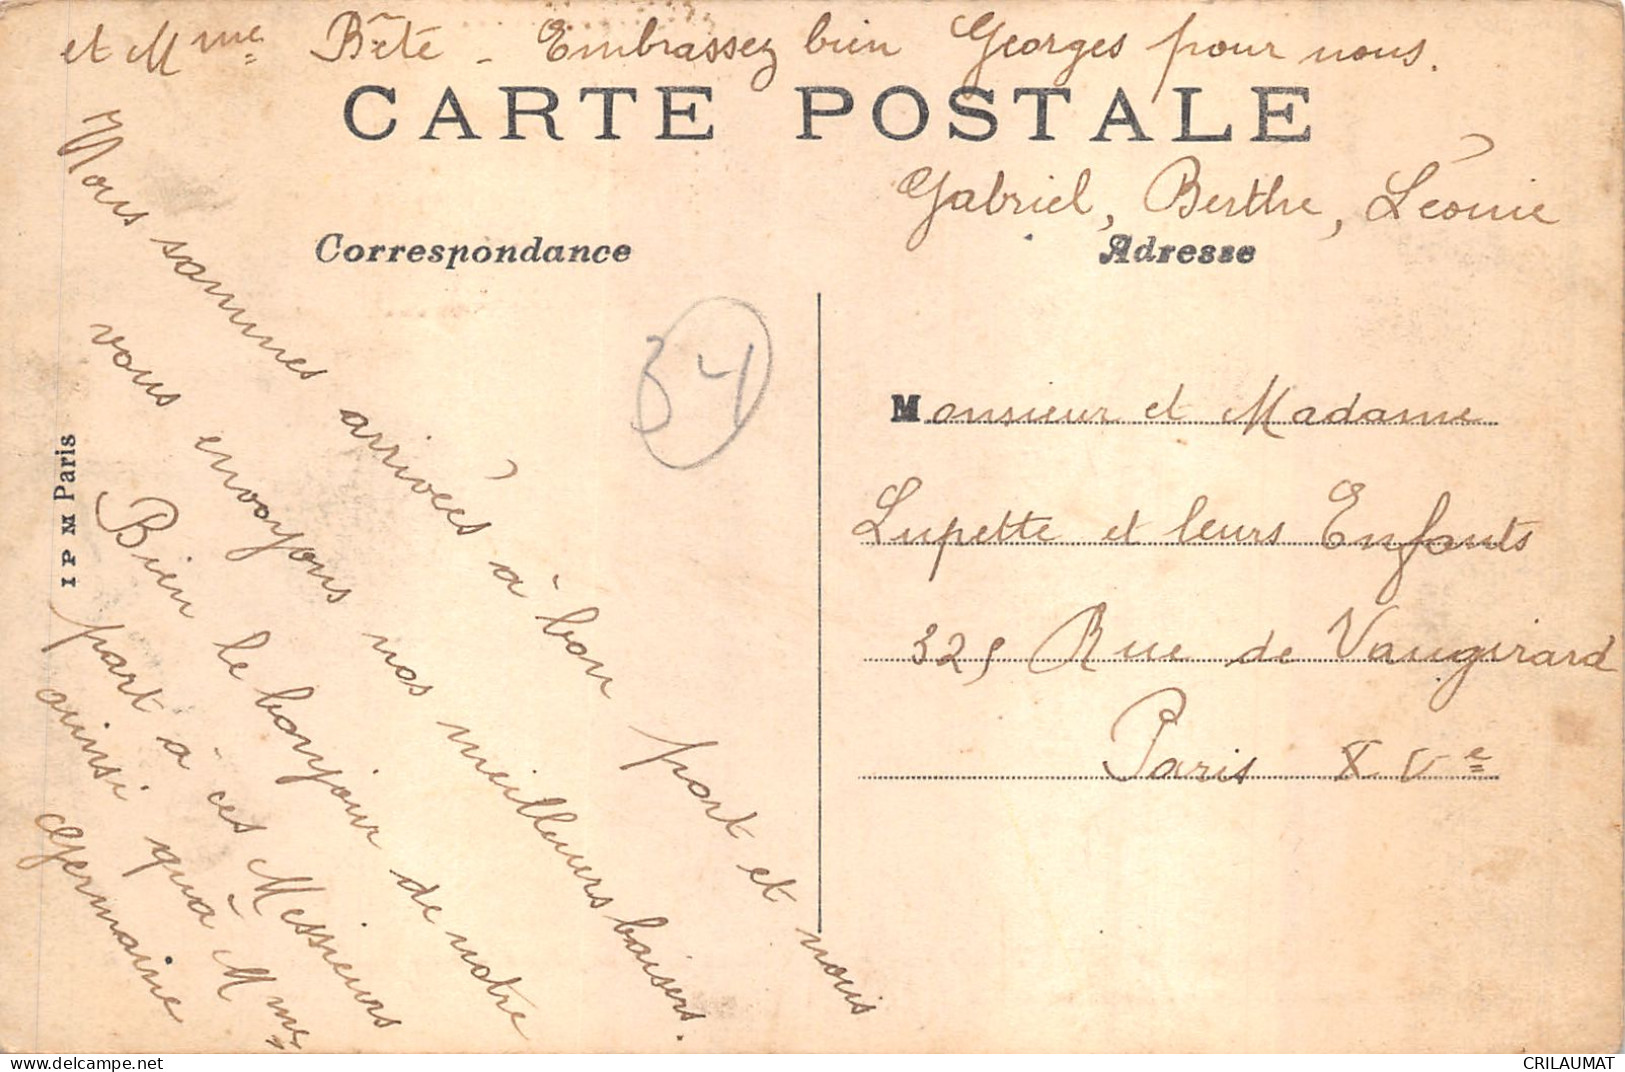 et Mme Bêté - Embrassez bien Georges pour nous.
CARTE POSTALE
Gabriel, Berthe, Léonie
Correspondance
Adresse
Nous sommes arrivées à bon port et nous
vous envoyons nos meilleurs baisers.
Bien le bonjour de notre
part à ces Messieurs
ainsi qu'à Mme
Germaine
34
I P M Paris
Monsieur et Madame
Lupette et leurs Enfants
325 Rue de Vaugirard
Paris XVe
CRILAUMAT